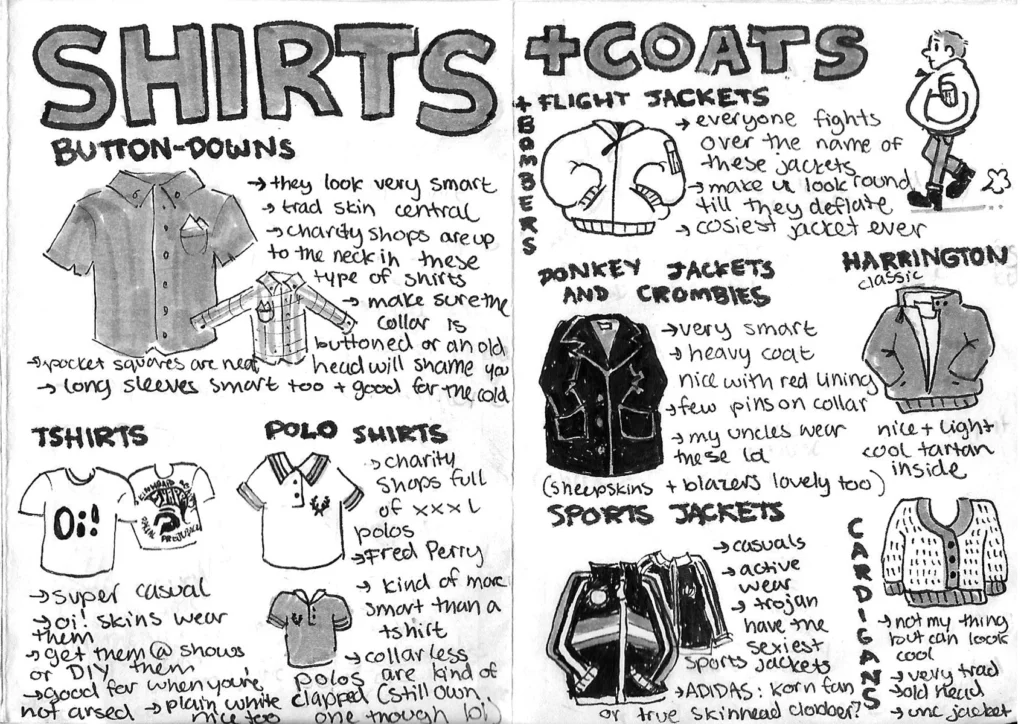 SHIRTS
BUTTON-DOWNS
→ they look very smart
→ trad skin central
→ charity shops are up
to the neck in these
type of shirts
→ make sure the
collar is
buttoned or an old
head will shame you
→ pocket squares are neat
→ long sleeves smart too + good for the cold
TSHIRTS
Oi!
→ super casual
→ oi! skins wear
them
→ get them @ shows
or DIY them
→ good for when you're
not arsed
→ plain white
nice too
POLO SHIRTS
→ charity
shops full
of XXXL
polos
→ Fred Perry
→ kind of more
smart than a
tshirt
→ collarless
polos are kind of
clapped (still own
one though lol)
+COATS
+ BOMBERS
FLIGHT JACKETS
→ everyone fights
over the name of
these jackets
→ make u look round
till they deflate
→ cosiest jacket ever
DONKEY JACKETS
AND CROMBIES
→ very smart
→ heavy coat
nice with red lining
→ few pins on collar
→ my uncles wear
these lol
(sheepskins + blazers lovely too)
HARRINGTON
classic
nice + light
cool tartan
inside
SPORTS JACKETS
→ casuals
→ active
wear
→ trojan
have the
sexiest
sports jackets
→ ADIDAS: korn fan
or true skinhead clobber?
CARDIGANS
→ not my thing
but can look
cool
→ very trad
→ old head
→ unc jacket